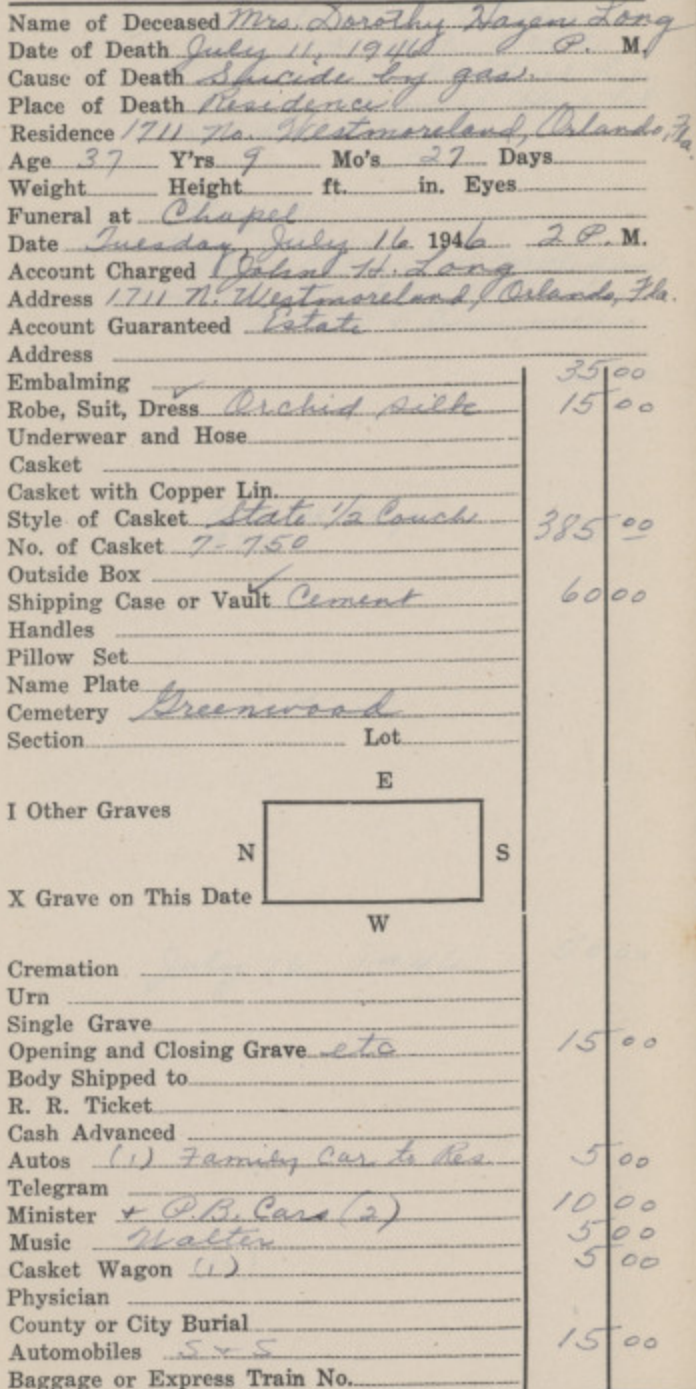 Name of Deceased Mrs. Dorothy Hazen Long
Date of Death July 11, 1946 P. M.
Cause of Death Suicide by gas.
Place of Death Residence
Residence 1711 No. Westmoreland, Orlando, Fla.
Age 37 Y'rs 9 Mo's 27 Days
Weight Height ft. in. Eyes
Funeral at Chapel
Date Tuesday, July 16 1946 2 P. M.
Account Charged John H. Long
Address 1711 N. Westmoreland, Orlando, Fla.
Account Guaranteed Estate
Address
Embalming 35 00
Robe, Suit, Dress Orchid silk 15 00
Underwear and Hose
Casket
Casket with Copper Lin.
Style of Casket State 1/2 Couch 385 00
No. of Casket 7-750
Outside Box
Shipping Case or Vault Cement 60 00
Handles
Pillow Set
Name Plate
Cemetery Greenwood
Section Lot
E
I Other Graves
N S
X Grave on This Date
W
Cremation
Urn
Single Grave
Opening and Closing Grave etc 15 00
Body Shipped to
R. R. Ticket
Cash Advanced
Autos (1) Family Car to Res 5 00
Telegram
Minister + P.B. Cars (2) 10 00
Music Walter 5 00
Casket Wagon (1) 5 00
Physician
County or City Burial
Automobiles S + S 15 00
Baggage or Express Train No.